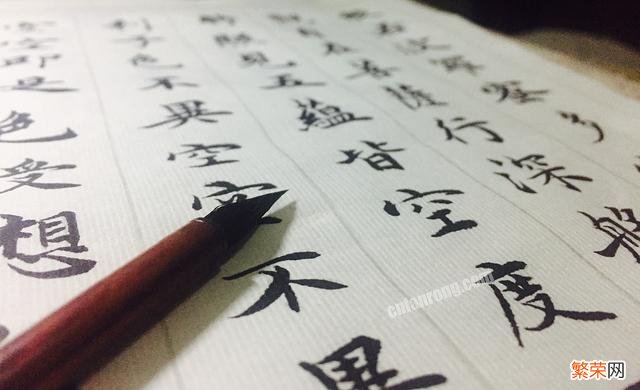 若波羅蜜多
自在菩薩行深般
照見五蘊皆空度
利子色不異空空不異
空即是色受想
cnfanrong.com
繁荣网